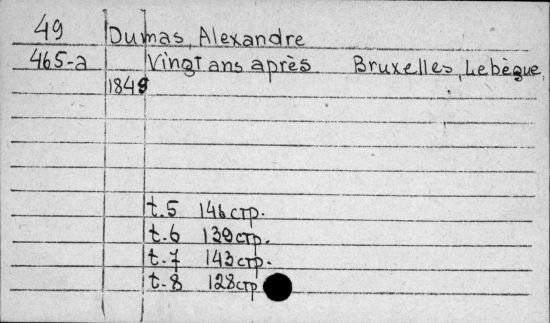 49 Dumas, Alexandre
465-a Vingt ans après Bruxelles, Lebègue,
1845
t.5 146 стр.
t.6 139 стр.
t.7 143 стр.
t.8 128 стр